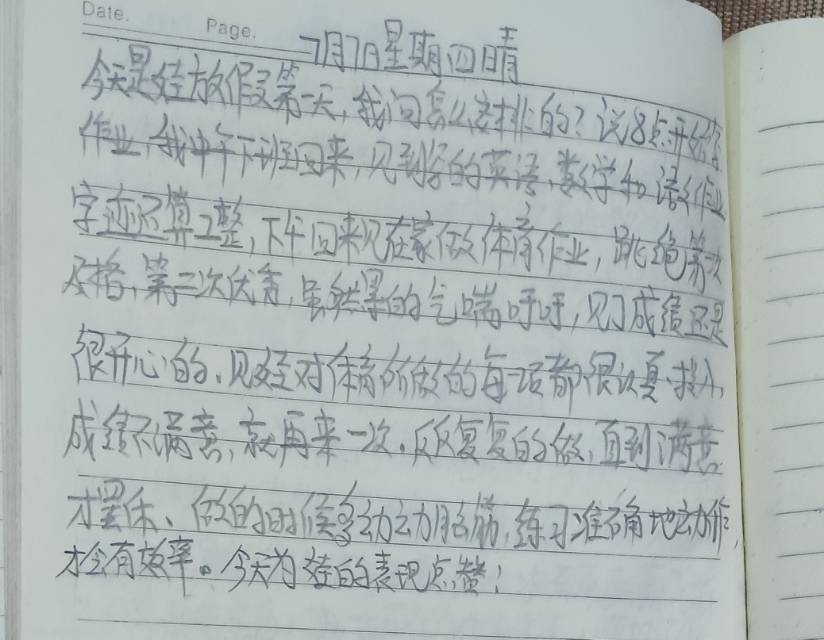 Date.
Page.
7月7日星期四晴
今天是娃放假第一天,我问怎么安排的?说8点开始写
作业,我中午下班回来,见到写的英语、数学和语文作业
字迹还算工整,下午回来见在家做体育作业,跳绳第一次
及格,第二次优良,虽然累的气喘吁吁,见了成绩还是
很开心的、见娃对体育所做的每一项都很认真、投入,
成绩不满意,就再来一次.反反复复的做,直到满意
才罢休、做的时候多动动脑筋,练习准确地动作,
才会有效率。今天为娃的表现点赞!